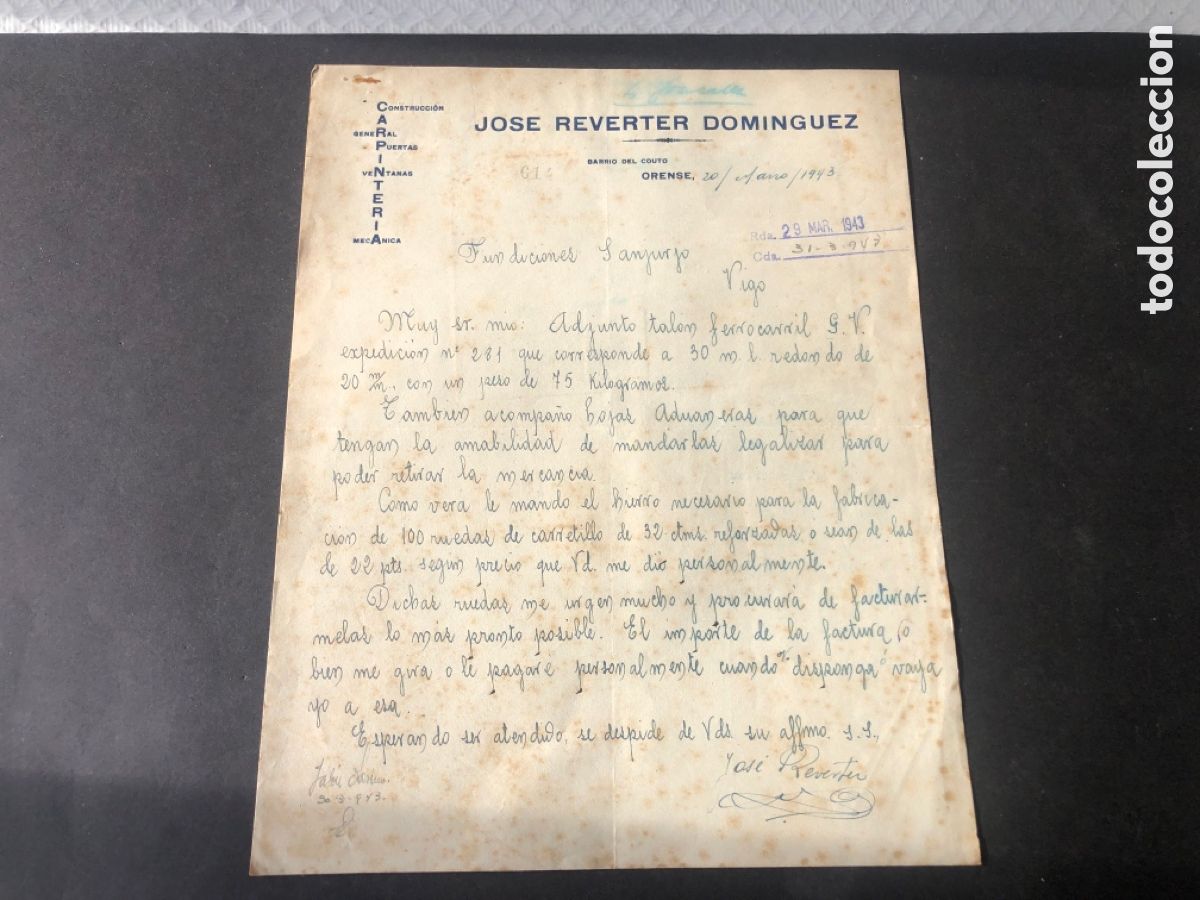 CONSTRUCCIÓN
CARPINTERIA
GENERAL
PUERTAS
VENTANAS
MECANICA
JOSE REVERTER DOMINGUEZ
BARRIO DEL COUTO
ORENSE, 20/Marzo/1943
Rda. 29 MAR. 1943
Cda. 31-3-943
Fundiciones Sanjurjo
Vigo
Muy sr. mio: Adjunto talon ferrocarril G.V.
expedición nº 281 que corresponde a 30 m.l. redondo de
20 m/m, con un peso de 75 Kilogramos.
Tambien acompaño hojas Aduaneras para que
tengan la amabilidad de mandarlas legalizar para
poder retirar la mercancia.
Como vera le mando el hierro necesario para la fabrica-
cion de 100 ruedas de carretillo de 32 ctms. reforzadas o sean de las
de 22 pts. segun precio que Vd. me dio personalmente.
Dichas ruedas me urgen mucho y procurará de facturar-
melas lo más pronto posible. El importe de la factura, o
bien me gira o le pagaré personalmente cuando disponga ó vaya
yo a esa.
Esperando ser atendido, se despide de Vds. su affmo. s.s.,
José Reverter
30-3-943
todocoleccion